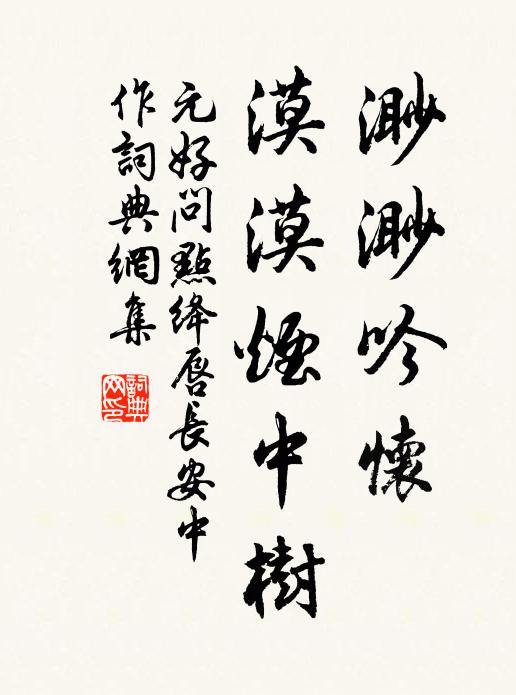 渺渺吟懷
漠漠煙中樹
元好問點絳唇長安中
作詞典網集
詞典网印